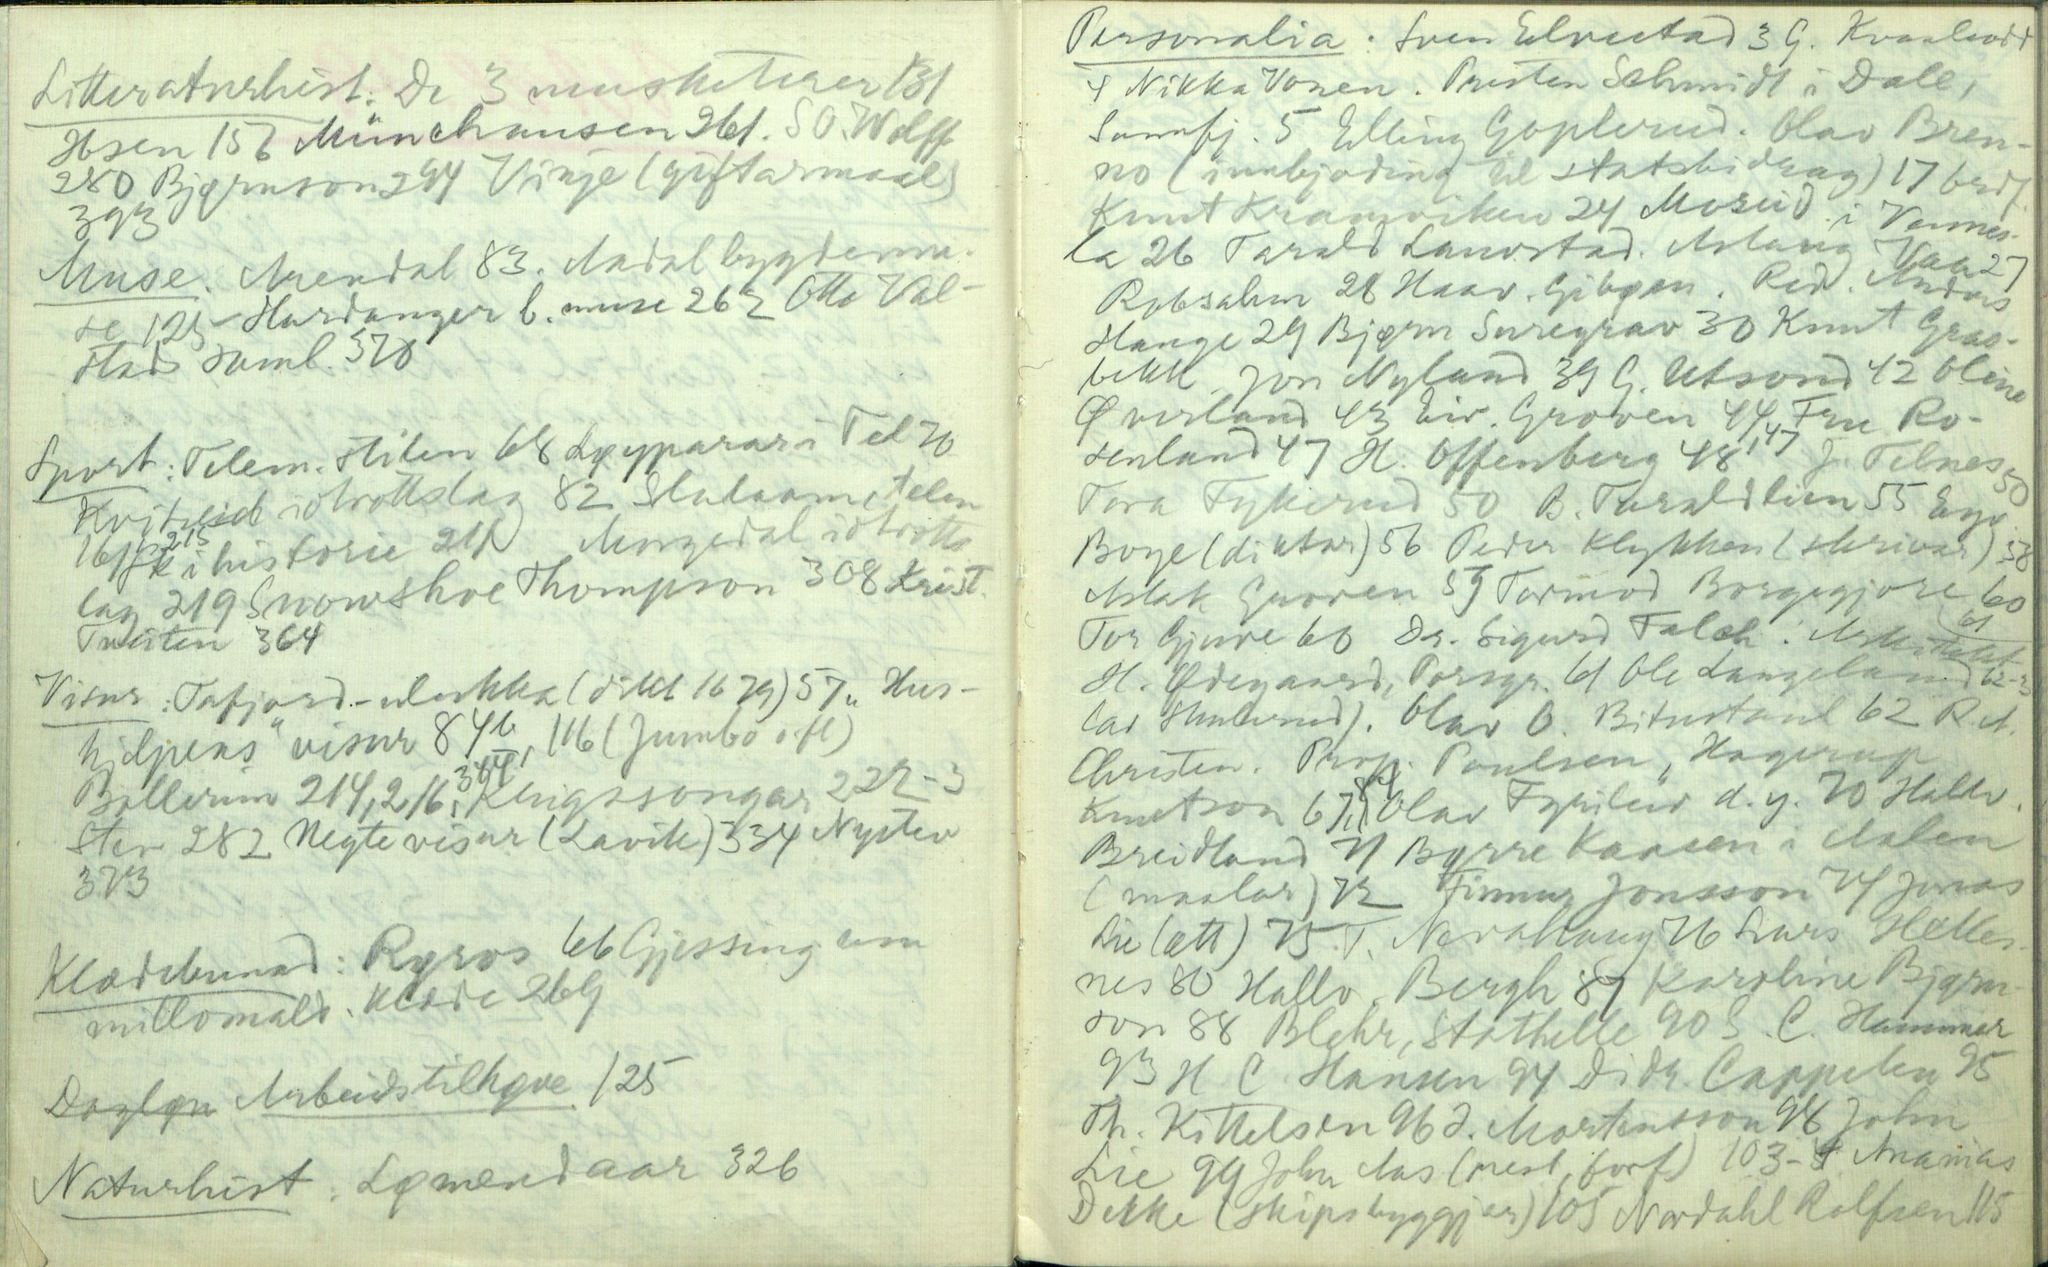 Litteraturhist: De 3 musketerer 131
Ibsen 156 Münchausen 261. S O. Wolff
280 Bjørnson 294 Vinje (giftarmaal)
393
Muse. Arendal 83. Aadal bygdemu-
se 125 Hardanger b. muse 262 Otto Val-
stads saml. 370
Sport: Telem. stilen 68 Løyparar i Tel 70
Kviteseid idrottslag 82 Slalaam, telem
161 Ski 215 i historie 211 Morgedal idrotts
lag 219 Snowshoe Thompson 308 Krist.
Tveiten 364
Visur: Tafjord-ulukka (dikt 1679) 57 "Hus-
hjelpens" visur 84 b, 116 (Jumbo ofl)
Bollerum 214, 216, 344, Krigssongar 222-3
Stev 282 Negtevisur (Lavik) 334 Nystev
373
Klædebunad: Røros 66 Gjessing um
millomald. klæde 269
Dagløn Arbeidstilhøve 125
Naturhist: Lømendaar 326
Personalia: Sven Elvestad 3 G.
4 Nikka Vonen. Presten Schmidt i Dale,
Sunnfj. 5 Elling Goplerud. Olav Bren-
no (innbjoding til statsbidrag) 17 brdf.
Knut Kramviken 24 Moseid i Vennes-
la 26 Tarald Lauvstad. Aslaug Vaa 27
Robsahm 28 Haav. Gibøen. Red. Anders
Hauge 29 Bjørn Suregrav 30 Knut Gras-
bekk. Jon Nyland 39 G. Utsond 42 Oline
Øverland 43 Eiv. Groven 44, 147 Fru Ro-
senland 47 H. Offenberg 48 J. Telnes 50
Tora Fykerud 50 B. Taraldlien 55 Eyv.
Boye (diktar) 56 Peder Klykken (skrivar) 58
Aslak Guoven 59 Tormod Borgegjore 60
Tor Gjuve 60 Dr. Sigurd Falch: Arkitekt 61
H. Ødegaard, Porsgr. 61 Ole Langeland 62-3
(av Skulerud). Olav O. Bitustaul 62 Ret.
Christen. Prop. Paulsen, Hagerup
Knutson 67, 84 Olav Fyrileiv d.y. 70 Hallv.
Breidland 71 Byrre Kaasen i Aalen
(maalar) 72 Finnur Jonsson 74 Jonas
Lie (ætt) 75 T. Nordhaug 76 Lars Helles-
nes 80 Hallv. Bergh 87 Karoline Bjørn-
son 88 Blehr, Stathelle 90 S. C. Hammer
93 H C Hansen 94 Didr. Cappelen 95
Th. Kittelsen 96 I. Mortensson 98 John
Lie 99 John Aas (prest, forf) 103-4 Ananias
Dekke (skipsbyggjar) 105 Nordahl Rolfsen 115